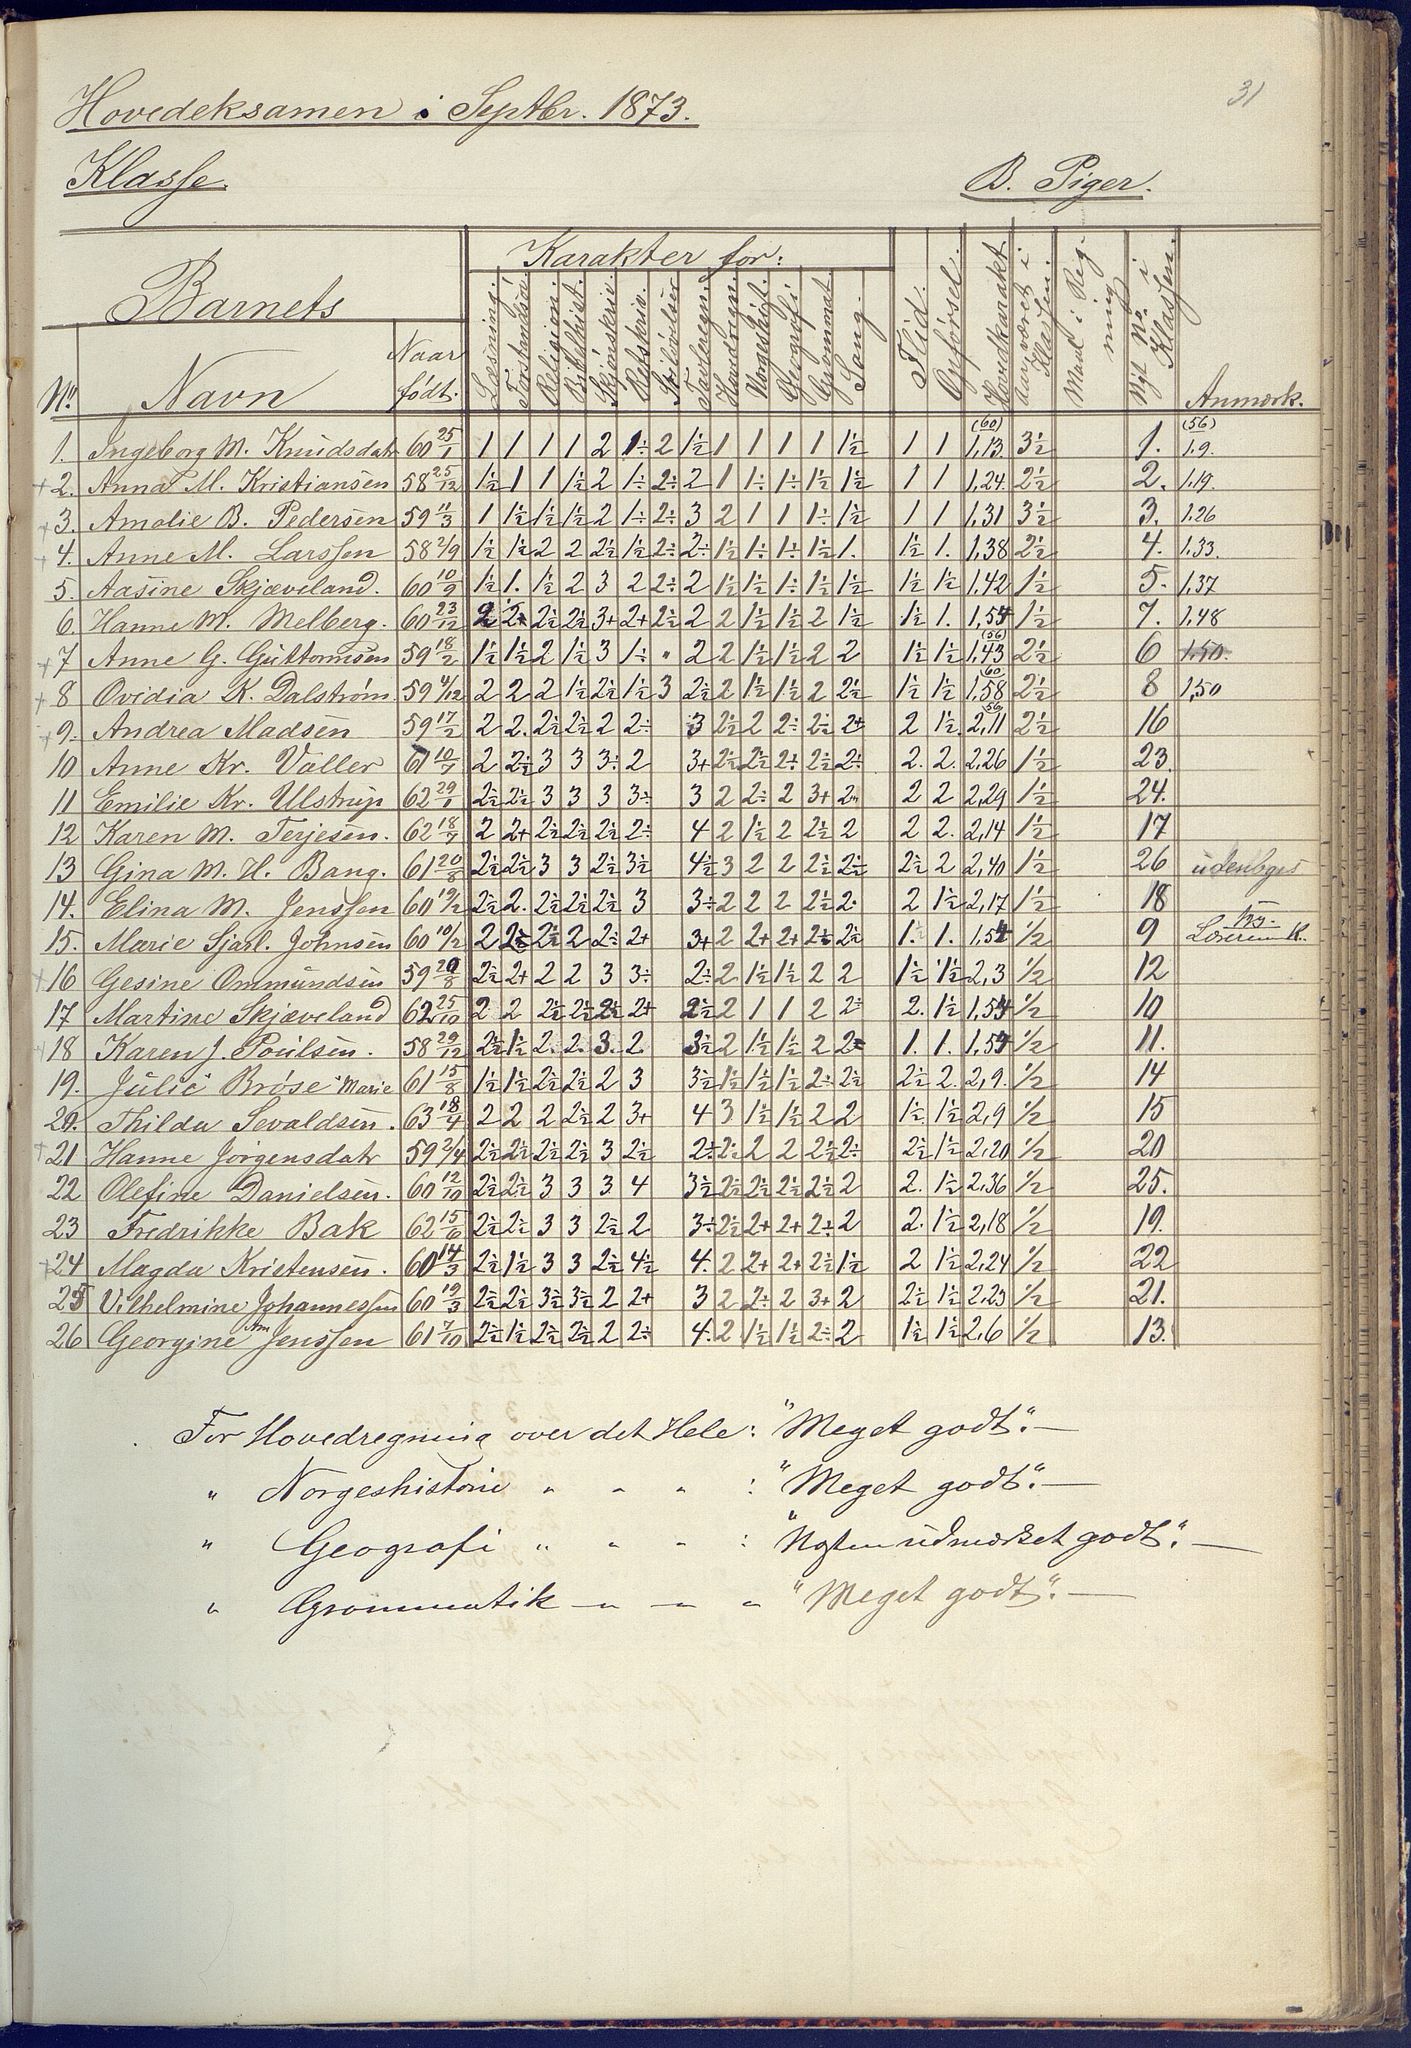 31
Hovedeksamen i Septbr. 1873.
Klasse. B. Piger.
Barnets Karakter for:
No. Navn Naar født. Læsning. Religion. Bibelhist. Skjönskriv. Retskriv. Stiløvelser Tavleregn. Hovdregn. Norgeshist. Geografi Grammat. Sang. Flid. Opførsel. Hovedkarakt. Aar været i Klassen. Maal i Regning Nyt No. i Klassen. Anmærk.
1. Ingeborg M. Knudsdatr 60 25/1 1 1 1 1 2 1÷ 2 1½ 1 1 1 1 1½ 1 1 (60) 1,13. 3½ 1. (56) 1.9.
+ 2. Anna M. Kristiansen 58 25/12 1½ 1 1 1½ 2 1÷ 2÷ 2 1 1½ 1÷ 1½ 1½ 1 1 1,24. 2½ 2. 1,19.
+ 3. Amalie B. Pedersen 59 11/3 1 1½ 1½ 1½ 2 1÷ 2÷ 3 2 1 1 1÷ 1½ 1 1 1,31 3½ 3. 1,26
+ 4. Anne M. Larssen 58 2/9 1½ 1½ 2 2 2½ 1½ 2÷ 2÷ 1½ 1÷ 1÷ 1½ 1. 1½ 1. 1,38 2½ 4. 1,33.
5. Aasine Skjæveland. 60 10/9 1½ 1. 1½ 2 3 2 2÷ 2 1½ 1½ 1÷ 1½ 1½ 1½ 1½ 1,42 1½ 5. 1,37
6. Hanne M. Melberg. 60 23/12 2½ 2+ 2½ 2½ 3+ 2+ 2½ 2 2 1½ 1½ 2 1½ 1½ 1. 1,54 1½ 7. 1,48
+ 7 Anne G. Guttormsen 59 18/2 1½ 1½ 2 1½ 3 1÷ " 2 2 1½ 1½ 2 2 1½ 1½ (56) 1,43 2½ 6 1,50.
+ 8 Ovidia K. Dalstrøm. 59 4/12 2 2 2 1½ 2½ 1½ 3 2½ 2 1½ 1½ 2 2½ 1½ 1½ (60) 1,58 2½ 8 1,50
+ 9. Andrea Madsen 59 17/2 2 2. 2½ 2½ 2 2÷ 3 2½ 2 2÷ 2½ 2+ 2 1½ 56 2,11 2½ 16
10 Anne Kr. Valler 61 10/7 2 2½ 3 3 3÷ 2 3+ 2½ 2½ 2+ 2½ 2÷ 2. 2. 2,26 1½ 23.
11 Emilie Kr. Ulstrup 62 29/1 2½ 2½ 3 3 3 3÷ 3 2 2÷ 2 3+ 2 2 2 2,29 1½ 24.
12 Karen M. Terjesen. 62 18/7 2 2+ 2½ 2½ 2½ 2÷ 4 2 1½ 2 2½ 2 2 2. 2,14 1½ 17
13 Gina M. H. Bang. 61 20/8 2½ 2½ 3 3 2½ 3½ 4½ 3 2 2 2½ 2½ 2½ 2 2,40 1½ 26 udenbyes
14. Elina M. Jenssen 60 19/2 2½ 2. 2½ 2½ 2½ 3 3÷ 2 2 2 2½ 2. 2 1½ 2,17 1½ 18
15. Marie Sjarl. Johnsen 60 10/2 2 2½ 2½ 2 2÷ 2+ 3+ 2 2+ 2+ 2½ 2½ 1. 1. 1,54 ½ 9
+ 16 Gesine Ommundsen 59 20/8 2½ 2+ 2 2 3 3÷ 2÷ 2 1½ 1½ 2 2 1½ 1½ 2,3 ½ 12
17 Martine Skjæveland 62 25/10 2 2 2½ 2½ 2½ 2+ 2½ 2 1 1 2 2÷ 2. 1½ 1,54 ½ 10
+ 18 Karen J. Poulsen. 58 29/12 2½ 1½ 2. 2. 3. 2. 3½ 2 1½ 1½ 2 2÷ 1. 1. 1,54 ½ 11.
19. Julie Brøse "Marie 61 15/8 1½ 1½ 2½ 2½ 2 3 3½ 1½ 1½ 1½ 2÷ 2½ 2½ 2. 2,9. ½ 14
20. Thilda Sevaldsen. 63 18/4 2 2 2 2½ 2 3+ 4 3 1½ 1½ 2 2 1½ 1½ 2,9 ½ 15
+ 21 Hanne Jørgensdatr 59 2/4 2½ 2½ 2½ 2½ 3 2½ 2÷ 2½ 2 2 2½ 2÷ 2½ 1½ 2,20 ½ 20
22 Olefine Danielsen. 60 12/10 2½ 2½ 3 3 3. 4 3½ 2½ 2½ 2½ 2½ 2 2. 1½ 2,36 ½ 25.
23 Fredrikke Bak 62 15/6 2½ 2½ 3 3 2½ 2 3÷ 2½ 2+ 2+ 2÷ 2 2. 1½ 2,18 ½ 19.
+ 24 Magda Kristensen. 60 14/3 2½ 1½ 3 3 2½ 4½ 4. 2 2+ 2+ 2½ 1½ 2 1½ 2,24 ½ 22
25 Vilhelmine Johannessen 60 19/3 2½ 2½ 3½ 3½ 2 2+ 3 2 2÷ 2 3+ 2 2½ 1½ 2,23 ½ 21.
26 Georgine Am Jenssen 61 7/10 2½ 1½ 2½ 2½ 2 2÷ 4. 2 1½ 1½ 2÷ 2 1½ 1½ 2,6 ½ 13.
For Hovedregning over det Hele: "Meget godt". —
" Norgeshistorie " " " : "Meget godt". —
" Geografi " " " : "Næsten udmærket godt". —
" Grammatik — " — " — " "Meget godt". —